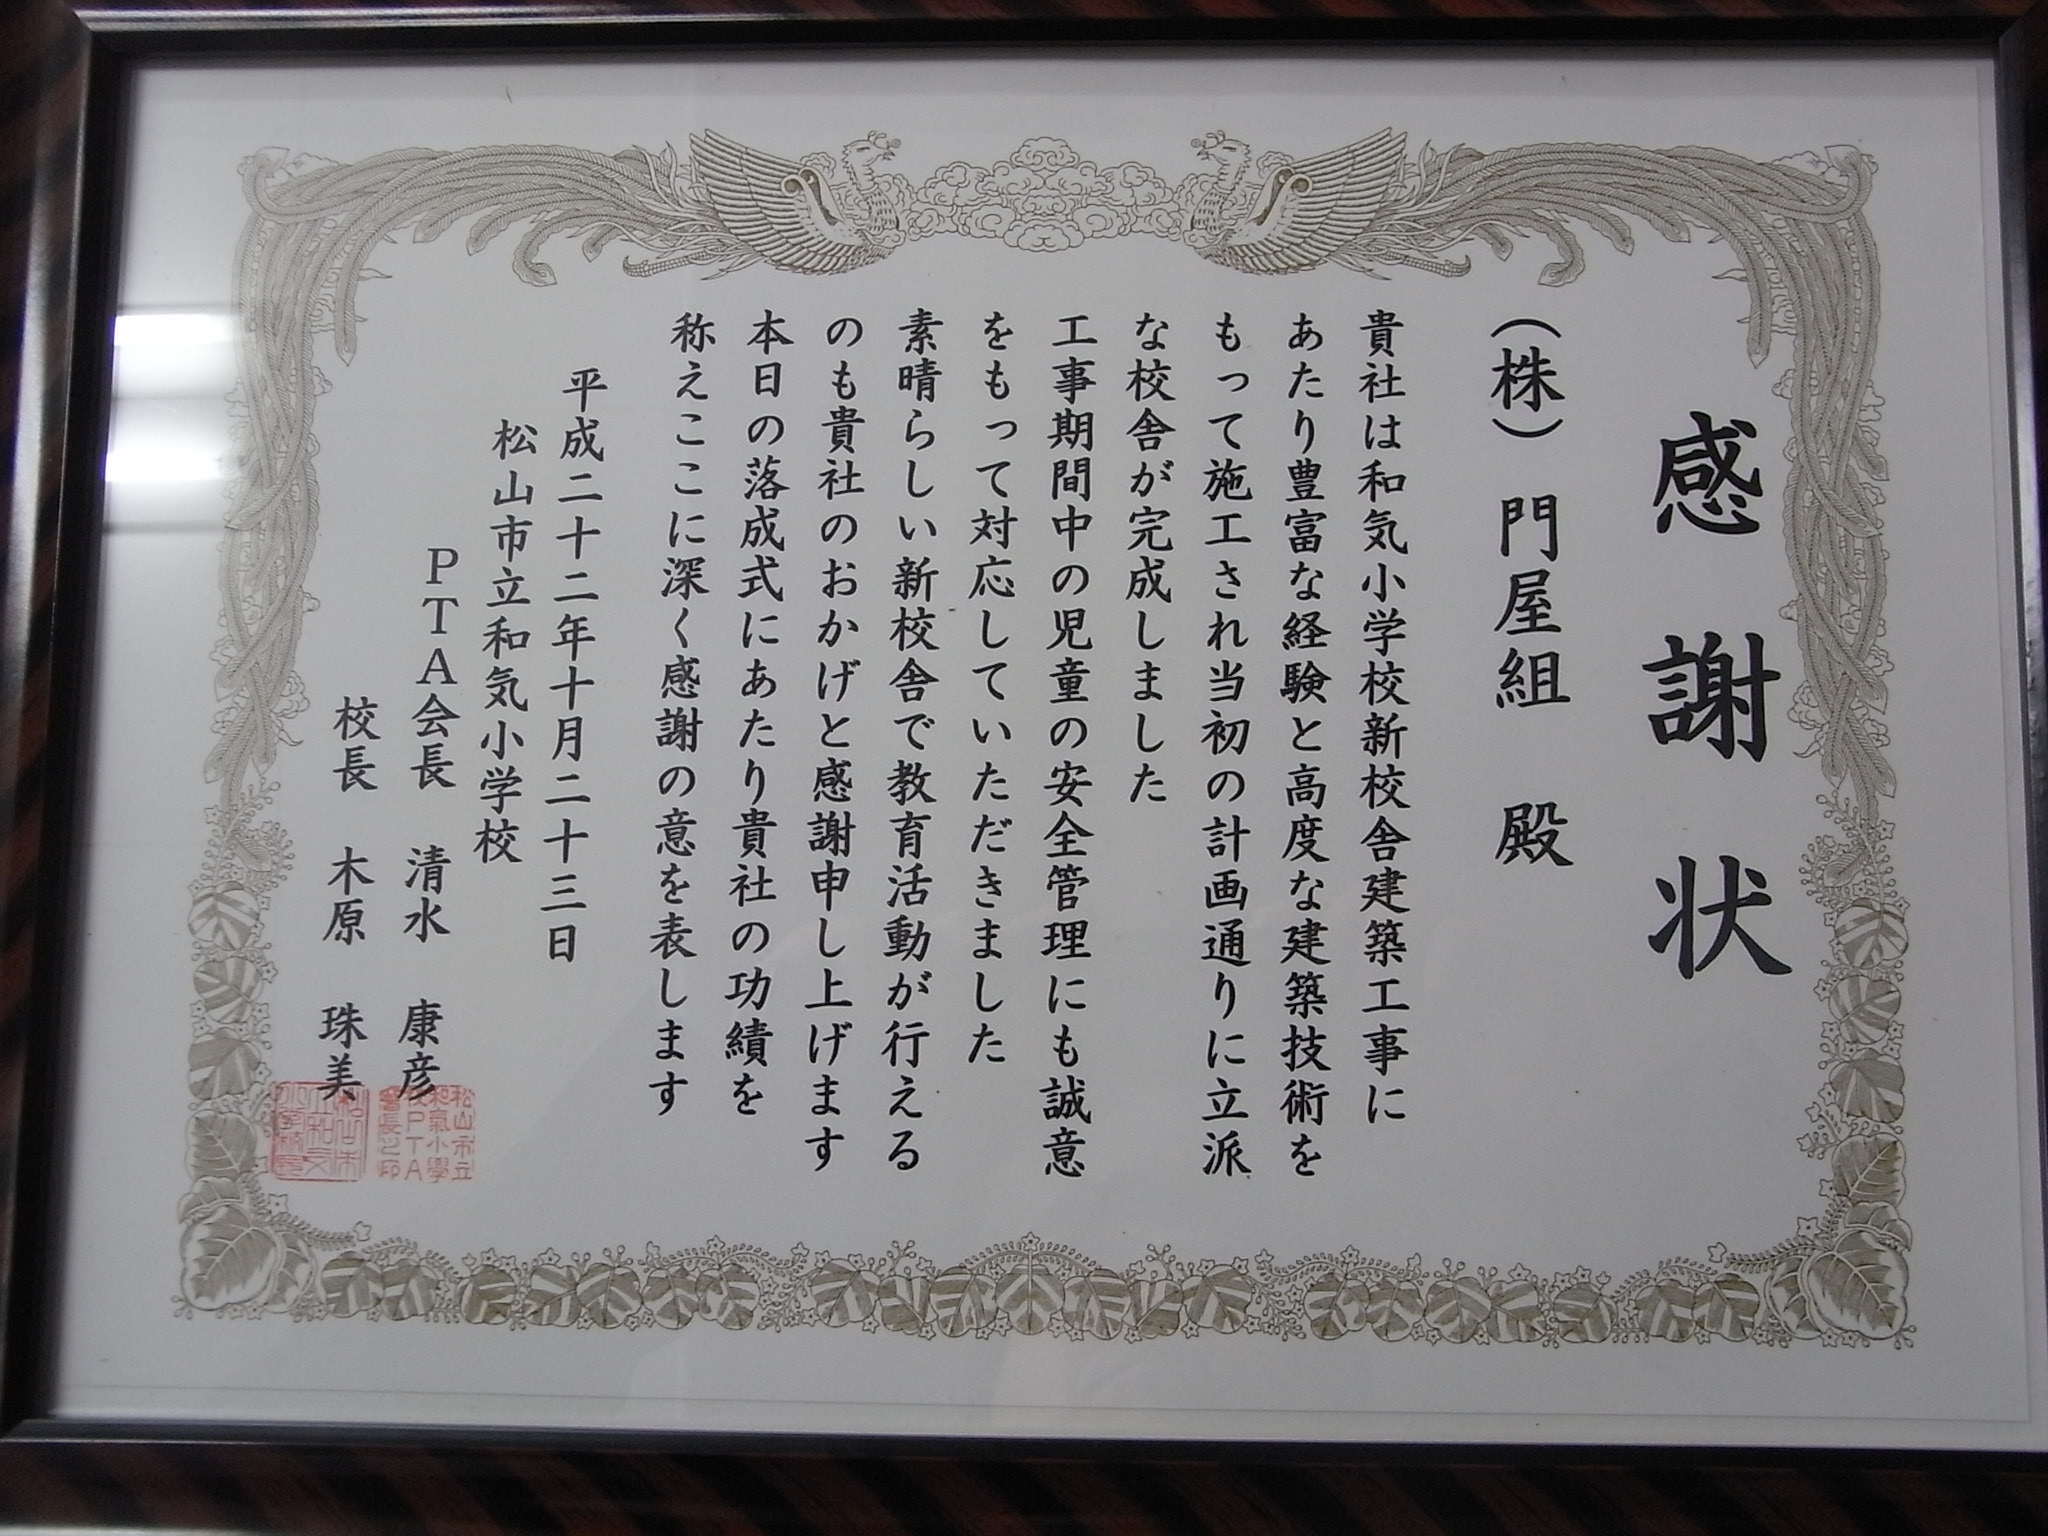 感謝状
(株) 門屋組 殿
貴社は和気小学校新校舎建築工事に
あたり豊富な経験と高度な建築技術を
もって施工され当初の計画通りに立派
な校舎が完成しました
工事期間中の児童の安全管理にも誠意
をもって対応していただきました
素晴らしい新校舎で教育活動が行える
のも貴社のおかげと感謝申し上げます
本日の落成式にあたり貴社の功績を
称えここに深く感謝の意を表します
平成二十二年十月二十三日
松山市立和気小学校
PTA会長 清水 康彦
校長 木原 珠美
松山市立
和氣小學
校PTA
會長之印